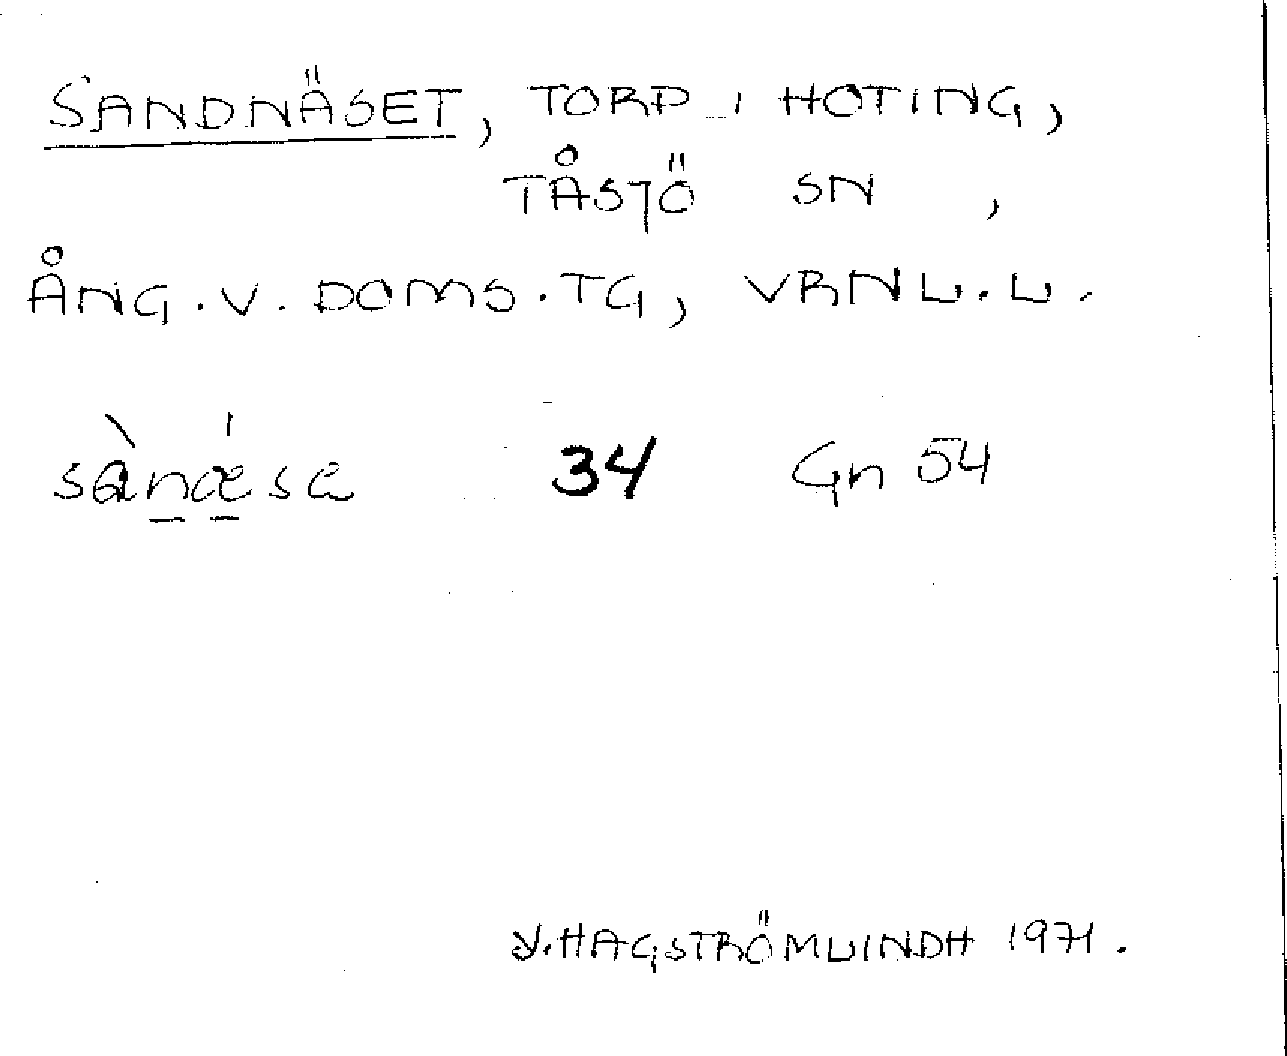 SANDNÄSET, TORP I HOTING,
TÅSJÖ SN,
ÅNG.V.DOMS.TG, VRNL.L.
sànǽsa 34 Gn 54
V.HAGSTRÖMLINDH 1971.